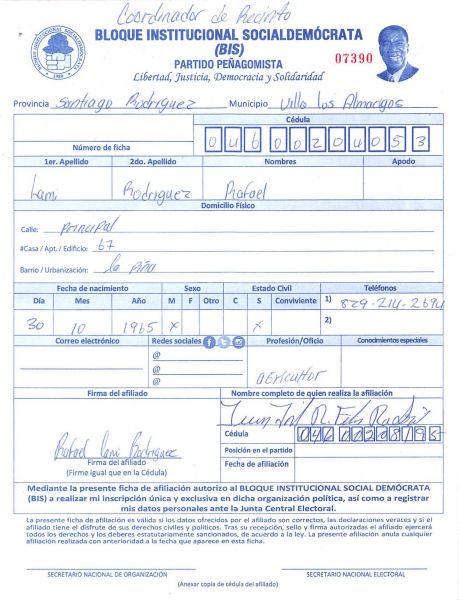 Coordinador de Recinto
BLOQUE INSTITUCIONAL SOCIALDEMÓCRATA
(BIS)
PARTIDO PEÑAGOMISTA
07390
Libertad, Justicia, Democracia y Solidaridad
Provincia Santiago Rodriguez Municipio Villa los Almacigos
Cédula
Número de ficha 04600204053
1er. Apellido 2do. Apellido Nombres Apodo
Lami Rodriguez Rafael
Domicilio Físico
Calle: Principal
#Casa / Apt. / Edificio: 67
Barrio / Urbanización: la Piña
Fecha de nacimiento Sexo Estado Civil Teléfonos
Día Mes Año M F Otro C S Conviviente 1) 829-214-2694
30 10 1965 X X 2)
Correo electrónico Redes sociales Profesión/Oficio Conocimientos especiales
@
@ agricultor
@
Firma del afiliado Nombre completo de quien realiza la afiliación
Cédula
Rafael Lami Rodriguez
Posición en el partido
Firma del afiliado
(Firme igual que en la Cédula)
Fecha de afiliación
Mediante la presente ficha de afiliación autorizo al BLOQUE INSTITUCIONAL SOCIAL DEMÓCRATA
(BIS) a realizar mi inscripción única y exclusiva en dicha organización política, así como a registrar
mis datos personales ante la Junta Central Electoral.
La presente ficha de afiliación es válida si los datos ofrecidos por el afiliado son correctos, las declaraciones veraces y si el
afiliado tiene el disfrute de sus derechos civiles y políticos. Tras su recepción, sello y firma autorizadas el afiliado ejercerá
todos los derechos y los deberes estatutariamente sancionados, de acuerdo a la ley. La presente afiliación anula cualquier
afiliación realizada con anterioridad a la fecha que aparece en esta ficha.
SECRETARIO NACIONAL DE ORGANIZACIÓN SECRETARIO NACIONAL ELECTORAL
(Anexar copia de cédula del afiliado)